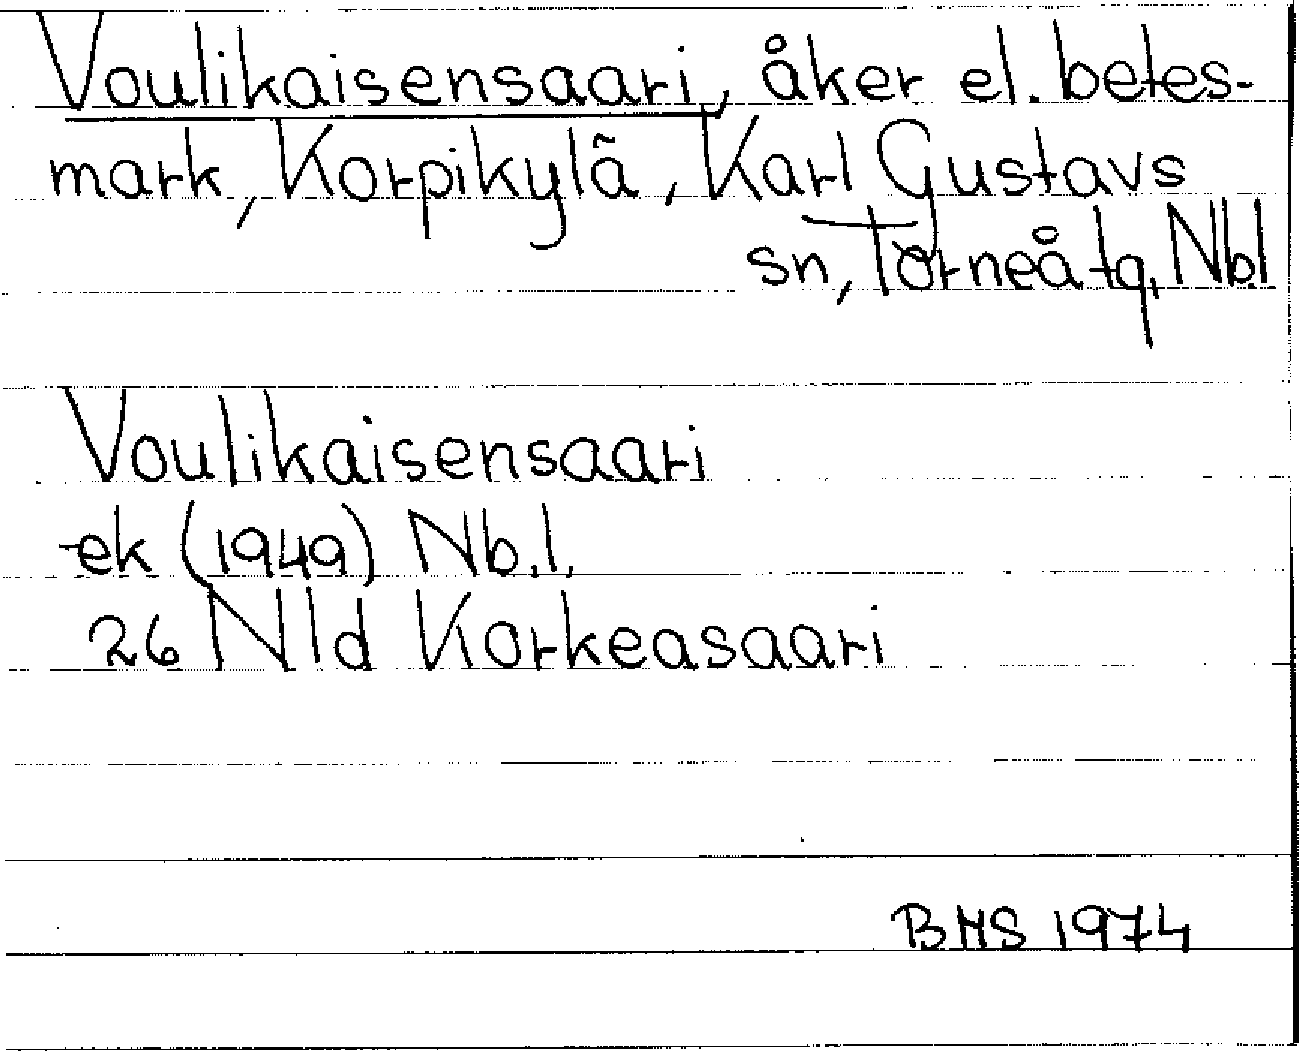 Voulikaisensaari, åker el. betes-
mark, Korpikylä, Karl Gustavs
sn, Torneå tg, Nb.l
Voulikaisensaari
ek (1949) Nb.l.
26 NId Korkeasaari
BHS 1974